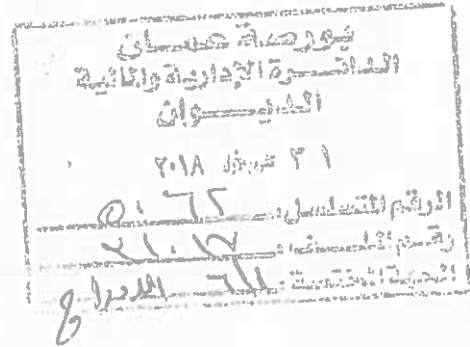 بورصة عمان
الدائرة الإدارية والمالية
الديوان
٣١ تموز ٢٠١٨
الرقم المتسلسل: ٥٠٦٢
رقم الملف:
الجهة المختصة: